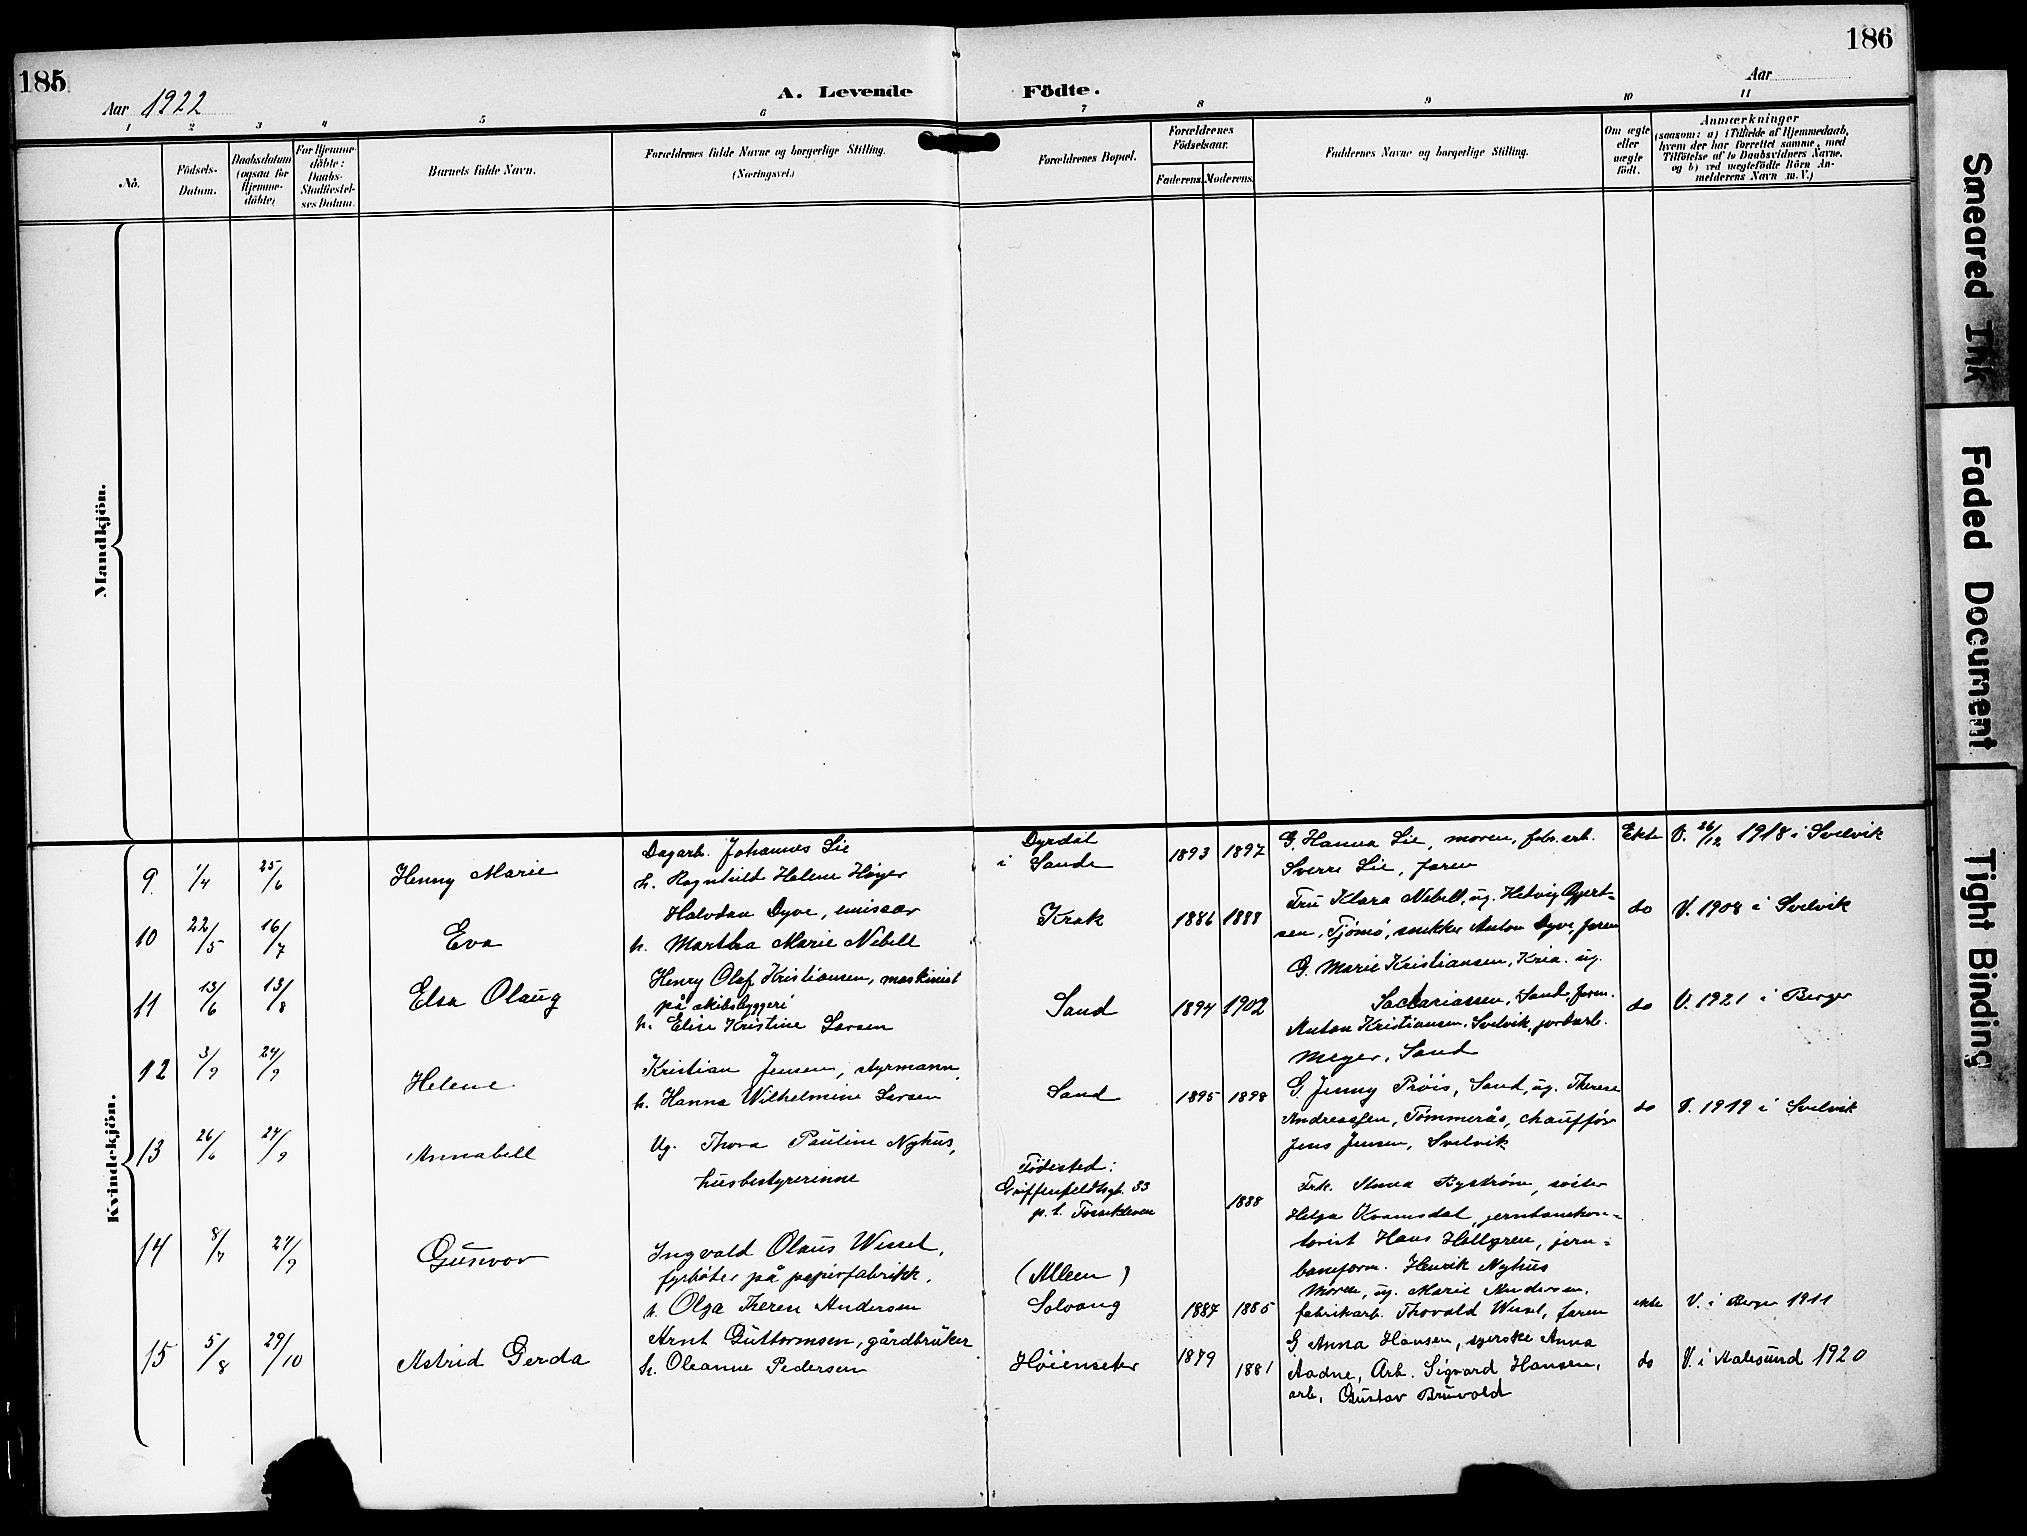 185
186
Aar 1922
A. Levende
Födte.
Aar
1
2
3
4
5
6
7
8
9
10
11
No.
Födsels-
Datum.
Daabsdatum
(ogsaa for
Hjemme-
döbte)
For Hjemme-
döbte:
Daabs-
Stadfæstel-
ses Datum.
Barnets fulde Navn.
Forældrenes fulde Navne og borgerlige Stilling.
(Næringsvei.)
Forældrenes Bopæl.
Forældrenes
Födselsaar.
Faderens.
Moderens.
Faddernes Navne og borgerlige Stilling.
Om ægte
eller
uægte
födt.
Anmærkninger
(saasom: a) i Tilfælde af Hjemmedaab,
hvem der har forrettet samme, med
Tilföielse af to Daabsvidners Navne,
og b) ved uægtefödte Börn An-
melderens Navn m. V.)
Mandkjön.
Kvindekjön.
9
1/4
25/6
Henny Marie
Dagarb. Johannes Lie
h. Ragnhild Helene Høyer
Dyrdal
i Sande
1893
1897
G. Hanna Lie, moren, fabr.arb.
Sverre Lie, faren
Ekte
V. 26/12 1918 i Svelvik
10
22/5
16/7
Eva
Halvdan Dyve, emissær
h. Martha Marie Nebell
Krok
1886
1888
Fru Klara Nebell, ug. Helvig Gjert-
sen, Tjømø, snekker Anton Dyve, faren
do
V. 1908 i Svelvik
11
13/6
13/8
Elsa Olaug
Henry Olaf Kristiansen, maskinist
på skibsbyggeri
h. Elise Kristine Larsen
Sand
1894
1902
G. Marie Kristiansen, Kria. ug.
Sachariassen, Sand, faren.
Anton Kristiansen, Svelvik, jordarb.
Meyer, Sand
do
V. 1921 i Berger
12
3/9
24/9
Helene
Kristian Jensen, styrmann,
h. Hanna Wilhelmine Larsen
Sand
1895
1898
G. Jenny Prøis, Sand, ug. Therese
Andreassen, Tømmerås, chauffør
Jens Jensen, Svelvik
do
V. 1919 i Svelvik
13
26/6
24/9
Annabell
Ug. Thora Pauline Nyhus,
husbestyrerinne
Fødested:
Griffenfeldtsgt. 33
p. t. Fossekleven
1888
Frk. Anna Bystrøm, søster
Helga Kvamsdal, jernbanekon-
torist Hans Hellgren, jern-
baneform. Henrik Nyhus
14
8/7
24/9
Gunvor
Ingvald Olaus Wessel,
fyrbøter på papirfabrikk,
h. Olga Theren Andersen
(Alleen)
Solvang
1887
1885
Moren, ug. Marie Andersen,
fabrikarb. Thorvald Wessel, faren
ekte
V. i Berger 1911
15
5/8
29/10
Astrid Gerda
Arnt Guttormsen, gårdbruker
h. Oleanne Pedersen
Høienseter
1879
1881
G. Anna Hansen, syerske Anna
Aadne, Arb. Sigvard Hansen,
arb. Gustav Bruvold
do
V. i Aalesund 1920
Smeared Ink
Faded Document
Tight Binding